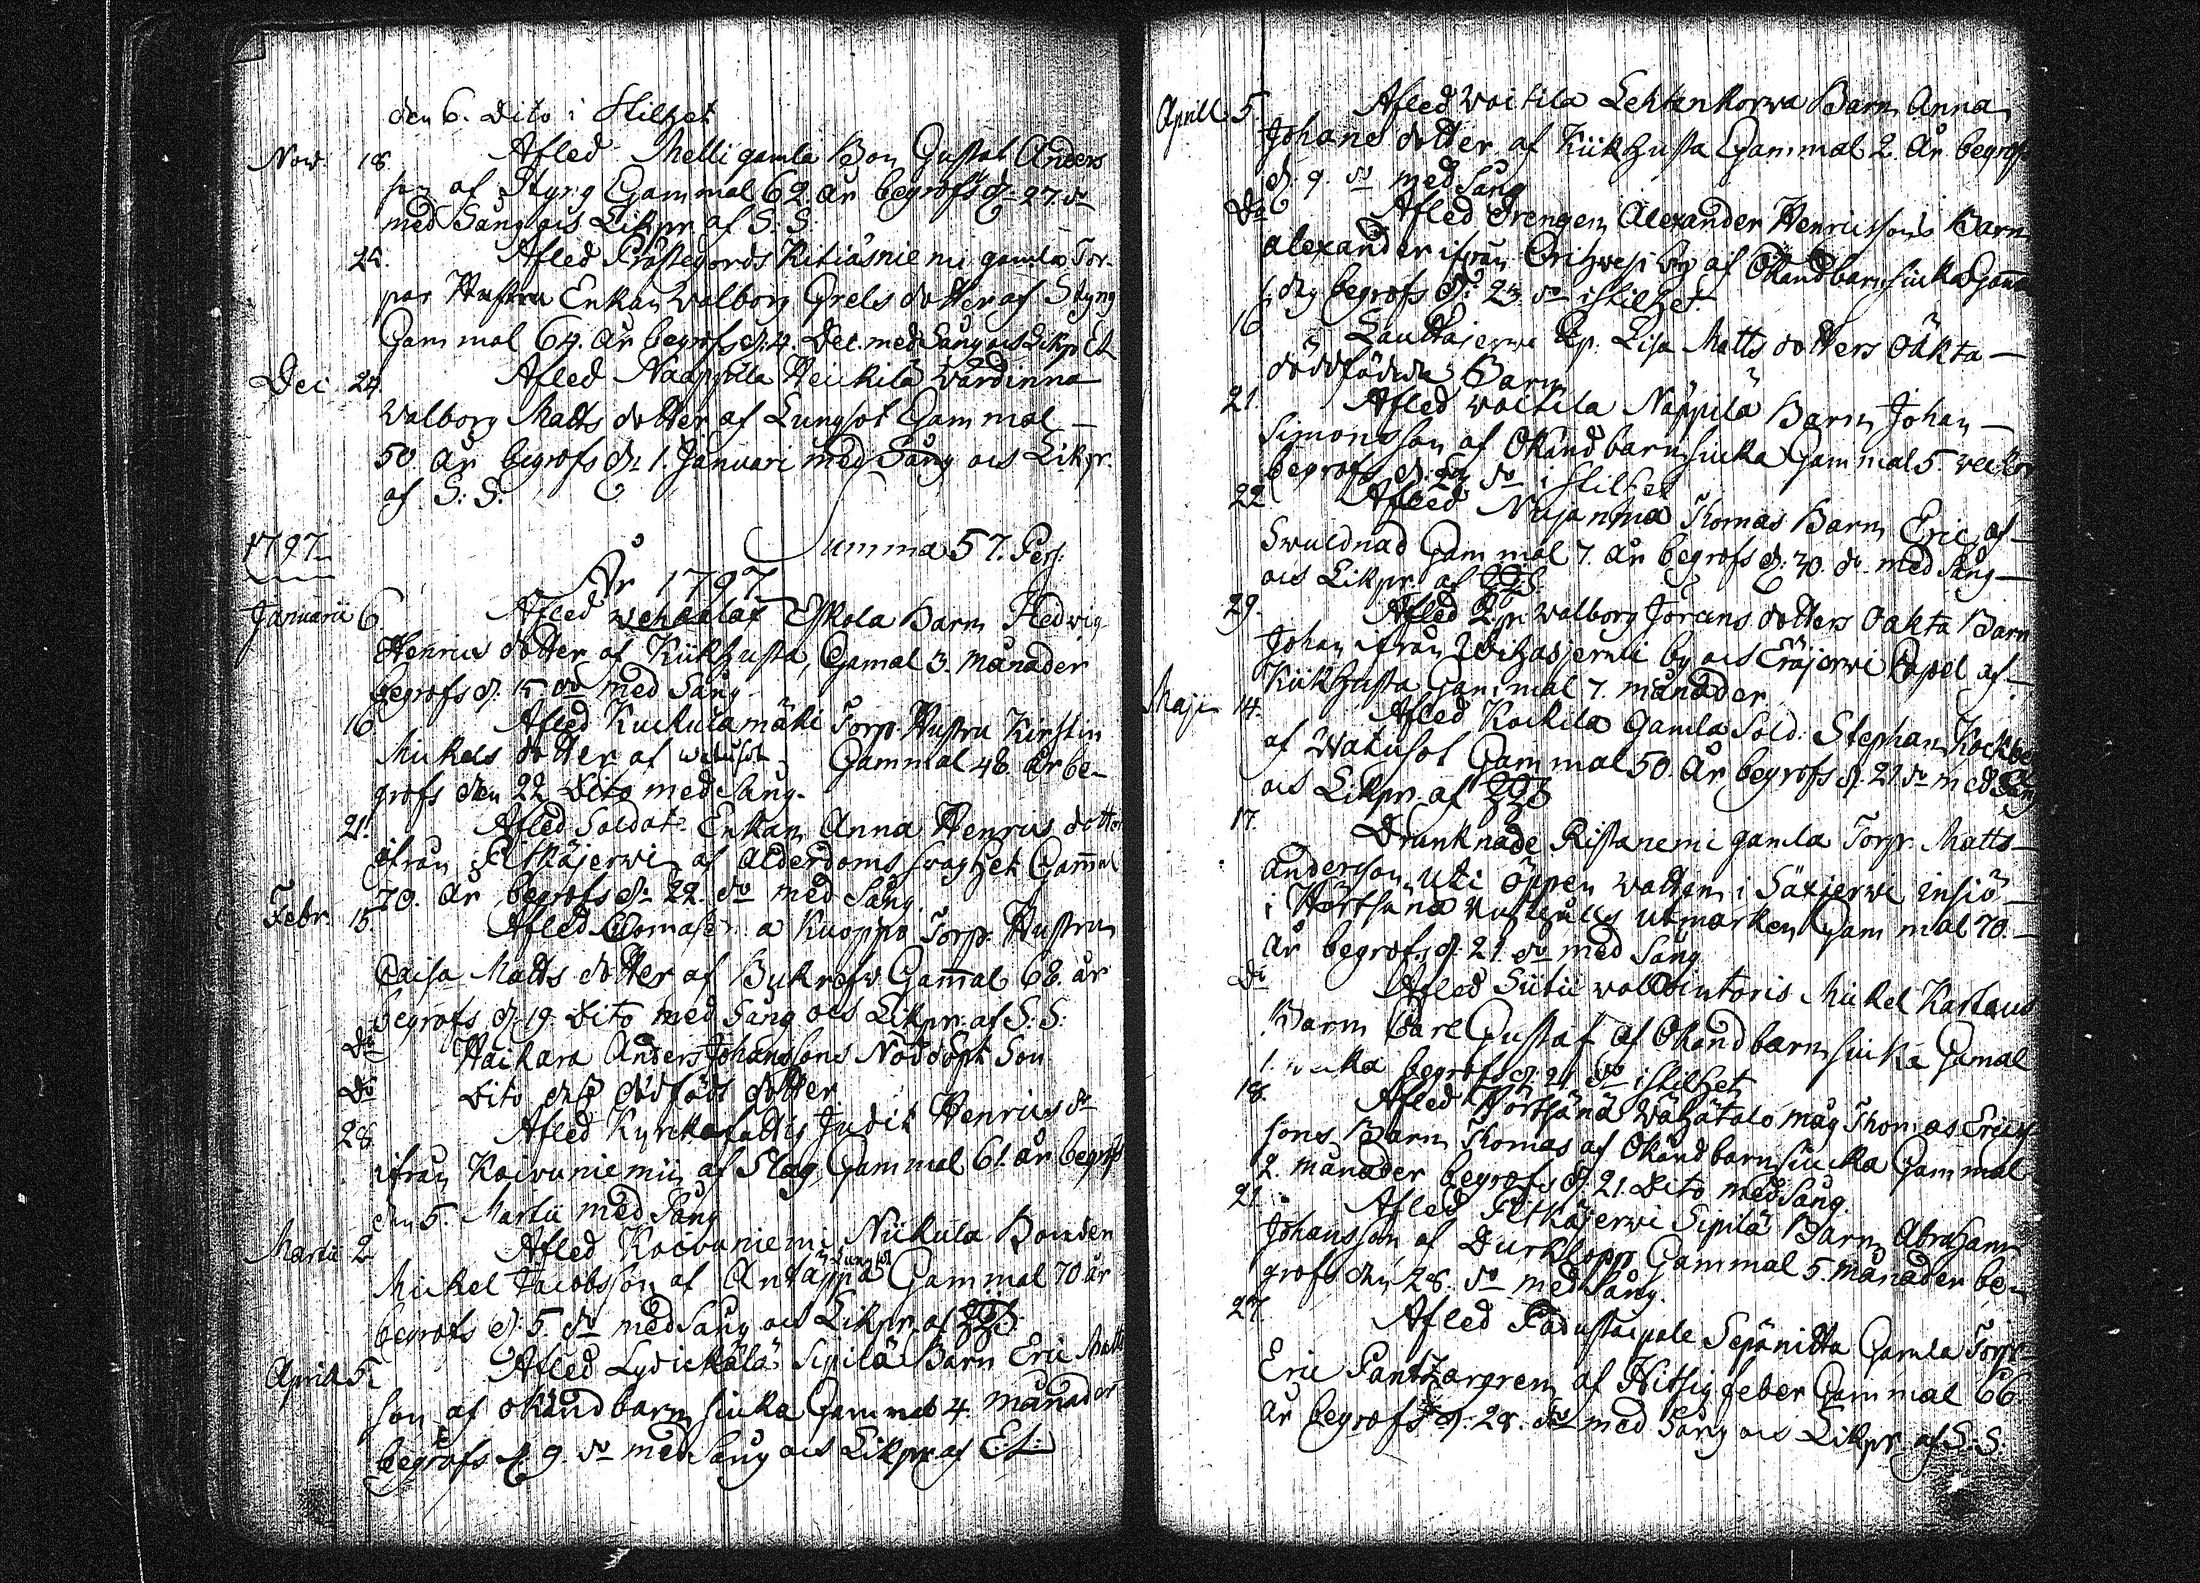 den 6. Dito i Stilhet
Nov. 18. Afled Melli gamla Bon Gustaf Anders
son af Styng Gammal 62. år begrofs d. 27. do
med Sång och Likpr. af S: S:
25. Afled Prästegords Kitiäsniemi gamla Tor-
par Hustru Enkan Walborg Grels dotter af Styng
Gammal 64. år begrofs d. 4. Dec. med Sång och Likpr.
Dec. 24. Afled Naappila Heickilä Wärdinna
Walborg Matts dotter af Lungsot Gammal
50 år begrofs d. 1. Januari med Sång och Likpr.
af S: S:
Summa 57. Pers.
1797
År 1797
Januarii 6. Afled Eskola Barn Hedwig
Henrics dotter af Kiikhusta, Gamal 3. månader
begrofs d. 15. do med Sång
16 Afled Kuckulamäki Torp. Hustru Kirstin
Mickels dotter af Gammal 48. år be-
grofs den 22 Dito med Sång.
21. Afled Soldats Enkan Anna Henrics dotter
ifrån Pitkäjerwi af ålderdoms svaghet Gammal
70. år begrofs d. 22. do med Sång
Febr. 15 Afled Kuoppo Torp. Hustrun
Caisa Matts dotter af Gammal 68. år
begrofs d. 19. Dito med Sång och Likpr. af S: S:
Do Haikara Anders Johanssons Nöddöpt Son
Do Dito dess dödfödt dotter
28 Afled Kyrckofattig Judit Henrics dr
ifrån Koivuniemi af Slag Gammal 61. år begrofs
den 5. Martii med Sång
Martii 2 Afled Koivuniemi Nickula Bonden
Mickel Jacobsson af Andtäppa Gammal 70 år
begrofs d. 5. do med Sång och Likpr. af
Aprill 5. Afled Lydickälä Sipilä Barn Eric Matts
son af okänd barnsiuka Gammal 4. månader
begrofs d. 9. do med Sång och Likpr. af
Aprill 5. Afled Woitila Lehtenkorwa Barn Anna
Johans dotter af Kiikhusta Gammal 2. år begrofs
d. 9. do med Sång
Do Afled Drengen Alexander Henricssons Barn
Alexander ifrån Orihwesi by af Okänd barnsiuka Gammal
dag begrofs d. 23. do i Stilhet.
16 Lauttajerwi Lisa Matts dotters Oäkta
dödfödde Barn
21. Afled Woitila Näppilä Barn Johan
Simonsson af Okänd barnsiuka Gammal 5. veckor
begrofs d. do i Stilhet
22 Afled Nuijanmaa Thomas Barn Eric af
Swullnad Gammal 7. år begrofs d. 30. do med Sång
och Likpr. af
29. Afled Walborg Jörans dotters Oäkta Barn
Johan ifrån Wihasjerwi by och Eräjerwi Capel af
Kiikhusta Gammal 7. månader
Maji 14. Afled Kockila Gamla Sold. Stephan Kock
af Watusot Gammal 50. år begrofs d. 21 do med Sång
och Likpr. af
17. Drunknade Ristanemi gamla Torpr. Matts
Andersson uti öppen watten i Säxjerwi insiö
i Hörtsänä utmarken Gammal 70.
år begrofs d. 21. do med Sång
Do Afled Mickel
Barn Carl Gustaf af Okänd barnsiuka Gamal
1. wecka begrofs d. 21. do i Stilhet
18. Afled Hörtsänä Wähätalo måg Thomas Erics
sons Barn Thomas af Okänd barnsiucka Gammal
2. månader begrofs d. 21. Dito med Sång.
21. Afled Pitkäjerwi Sipilä Barn Abraham
Johansson af Durklopp Gammal 5. månader be-
grofs den 28. do med Sång.
27. Afled Padustaipale Sepänitta Gamla Torpr.
Eric Pantzargren af Hitsig feber Gammal 66.
år begrofs d. 28. do med Sång och Likpr. af S: S: